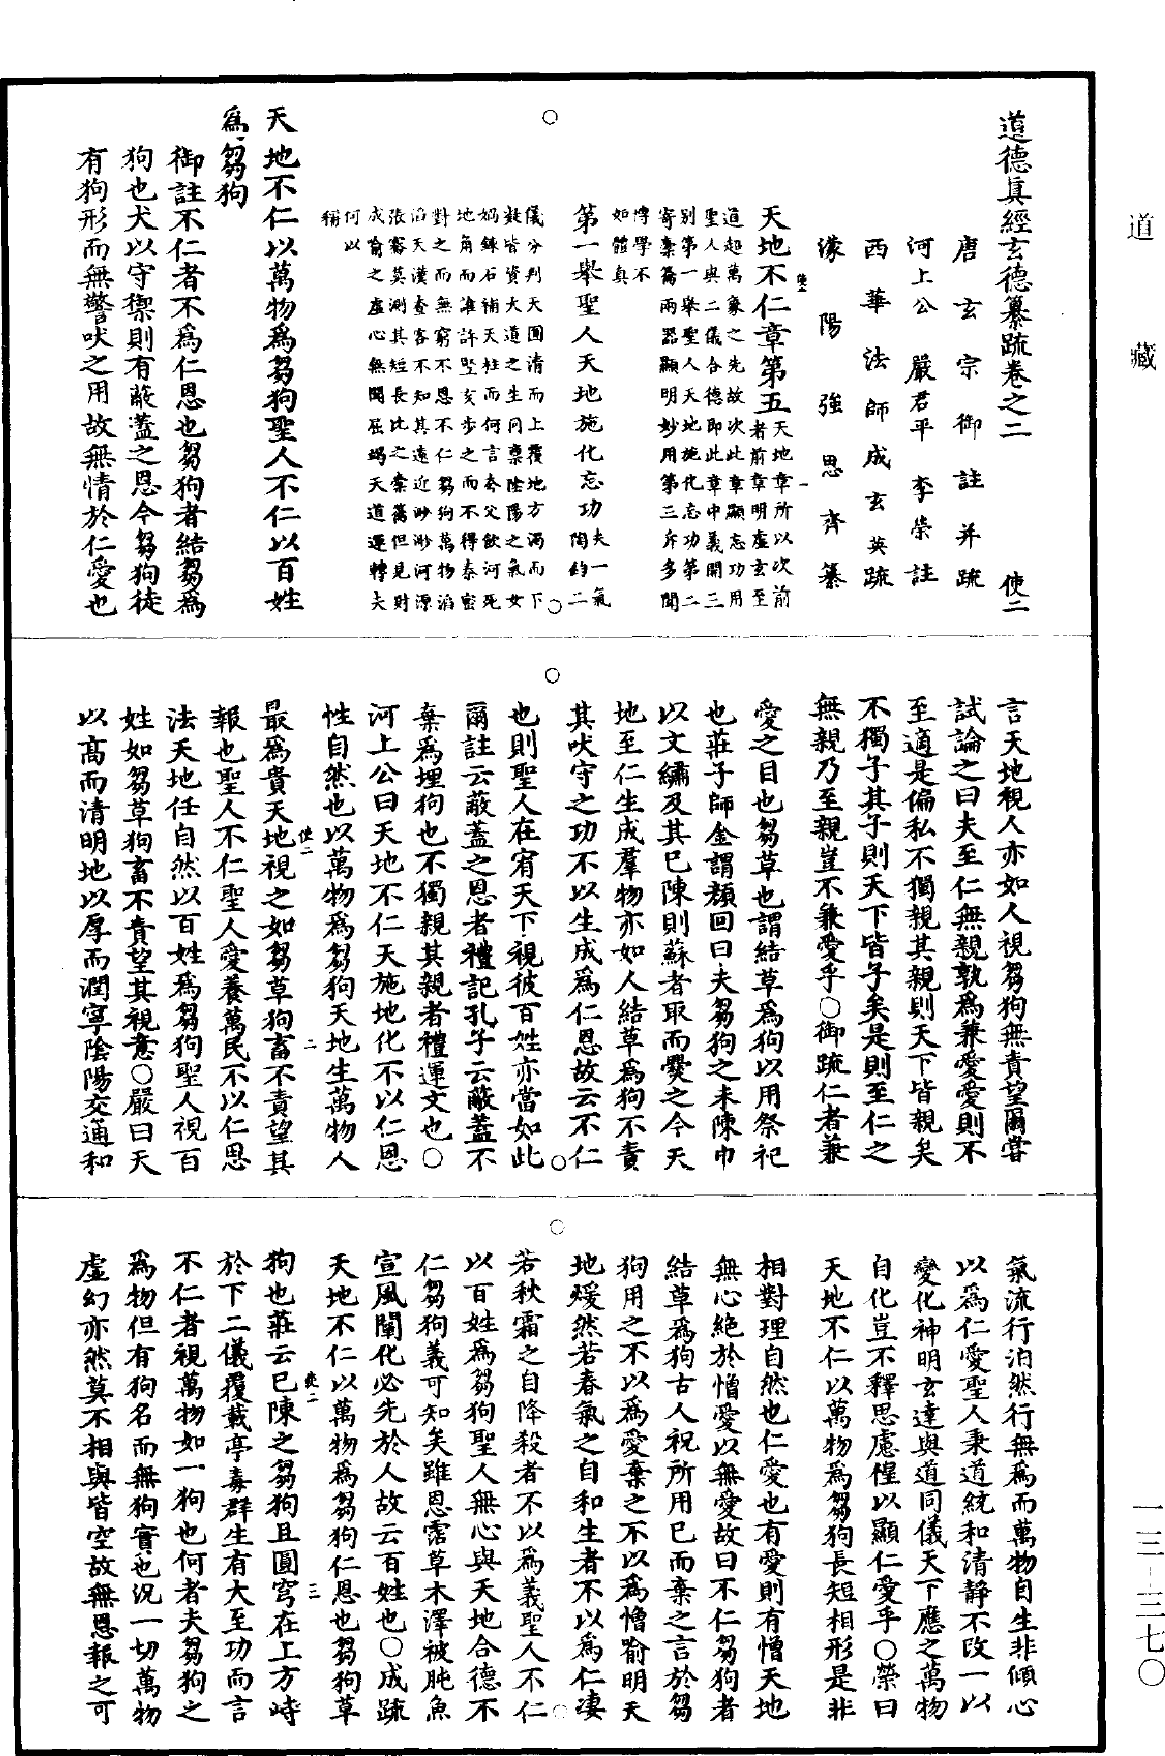 道德真經玄德纂疏卷之二　使二
唐玄宗御註并疏
河上公　嚴君平　李榮註
西華法師成玄英疏
濛陽強思齊纂
天地不仁章第五
天地章所以次前
者前章明虛玄至
道超萬象之先故次此章顯忘功用
聖人與二儀合德即此章中義開三
別第一舉聖人天地施化忘功第二
寄橐籥兩器顯明妙用第三斥多聞
博學不
如體真
第一舉聖人天地施化忘功
夫一氣
陶鈞二
儀分判天圓清而上覆地方濁而下
凝皆資大道之生同稟陰陽之氣女
媧鍊石補天柱而何言夸父飲河死
地角而誰許竪亥步之而不得泰蜜
對之而無窮不恩不仁芻狗萬物滔
滔天漢查客不知其遠近眇眇河漂
張騫莫測其短長比之橐籥但見財
成育之虛心無聞屈竭天道運轉夫
何以
稱
天地不仁以萬物爲芻狗聖人不仁以百姓
爲芻狗
御註不仁者不爲仁恩也芻狗者結芻爲
狗也犬以守禦則有蔽蓋之恩今芻狗徒
有狗形而無警吠之用故無情於仁愛也
言天地視人亦如人視芻狗無責望爾嘗
試論之曰夫至仁無親孰爲兼愛愛則不
至適是偏私不獨親其親則天下皆親矣
不獨子其子則天下皆子矣是則至仁之
無親乃至親豈不兼愛乎○御疏仁者兼
愛之目也芻草也謂結草爲狗以用祭祀
也莊子師金謂顏回曰夫芻狗之未陳巾
以文繡及其已陳則蘇者取而爨之今天
地至仁生成羣物亦如人結草爲狗不責
其吠守之功不以生成爲仁恩故云不仁
也則聖人在宥天下視彼百姓亦當如此
爾註云蔽蓋之恩者禮記孔子云蔽蓋不
棄爲埋狗也不獨親其親者禮運文也○
河上公曰天地不仁天施地化不以仁恩
性自然也以萬物爲芻狗天地生萬物人
最爲貴天地視之如芻草狗畜不責望其
報也聖人不仁聖人愛養萬民不以仁恩
法天地任自然以百姓爲芻狗聖人視百
姓如芻草狗畜不責望其視意○嚴曰天
以高而清明地以厚而潤寧陰陽交通和
氣流行泊然行無爲而萬物自生非傾心
以爲仁愛聖人秉道統和清靜不改一以
變化神明玄達與道同儀天下應之萬物
自化豈不釋思慮惶以顯仁愛乎○榮曰
天地不仁以萬物爲芻狗長短相形是非
相對理自然也仁愛也有愛則有憎天地
無心絶於憎愛以無愛故曰不仁芻狗者
結草爲狗古人祝所用已而棄之言於芻
狗用之不以爲愛棄之不以爲憎喻明天
地煖然若春氣之自和生者不以爲仁凄
若秋霜之自降殺者不以爲義聖人不仁
以百姓爲芻狗聖人無心與天地合德不
仁芻狗義可知矣雖恩霑草木澤被肫魚
宣風闡化必先於人故云百姓也○成疏
天地不仁以萬物爲芻狗仁恩也芻狗草
狗也莊云已陳之芻狗且圓穹在上方峙
於下二儀覆載亭毒群生有大至功而言
不仁者視萬物如一狗也何者夫芻狗之
爲物但有狗名而無狗實也況一切萬物
虛幻亦然莫不相與皆空故無恩報之可
道藏
一三-三七〇